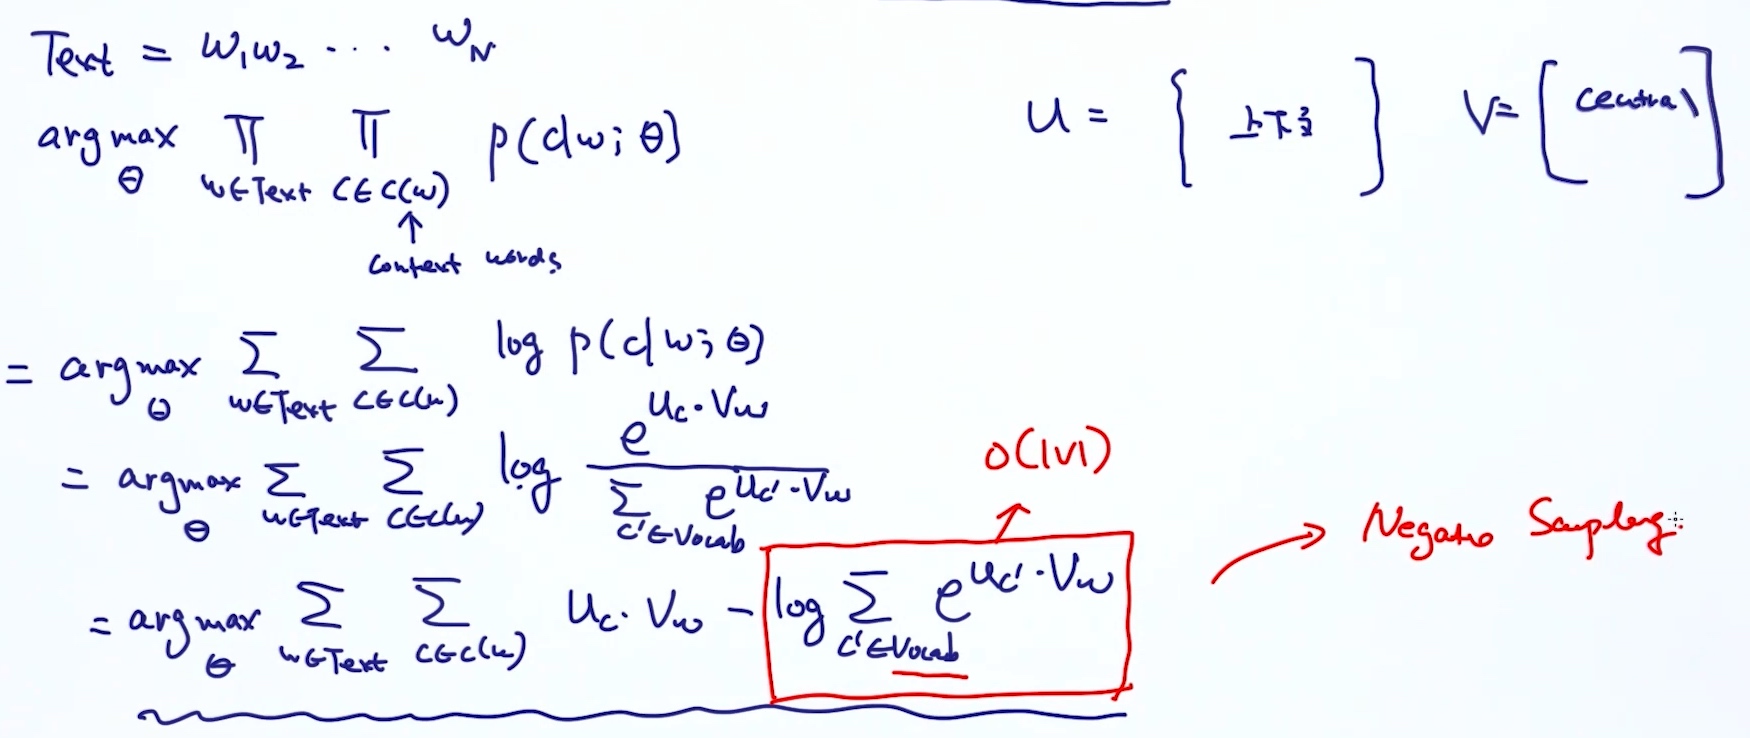 Text = w₁w₂ ··· w_N
arg max_θ ∏_{w∈Text} ∏_{c∈C(w)} p(c|w; θ)
↑
context words
U = [ 上下文 ] V = [ central ]
= arg max_θ ∑_{w∈Text} ∑_{c∈C(w)} log p(c|w; θ)
= arg max_θ ∑_{w∈Text} ∑_{c∈C(w)} log e^{U_c·V_w} / ∑_{c'∈Vocab} e^{U_c'·V_w}
= arg max_θ ∑_{w∈Text} ∑_{c∈C(w)} U_c · V_w − log ∑_{c'∈Vocab} e^{U_c'·V_w}
O(|V|)
→ Negative Sampling